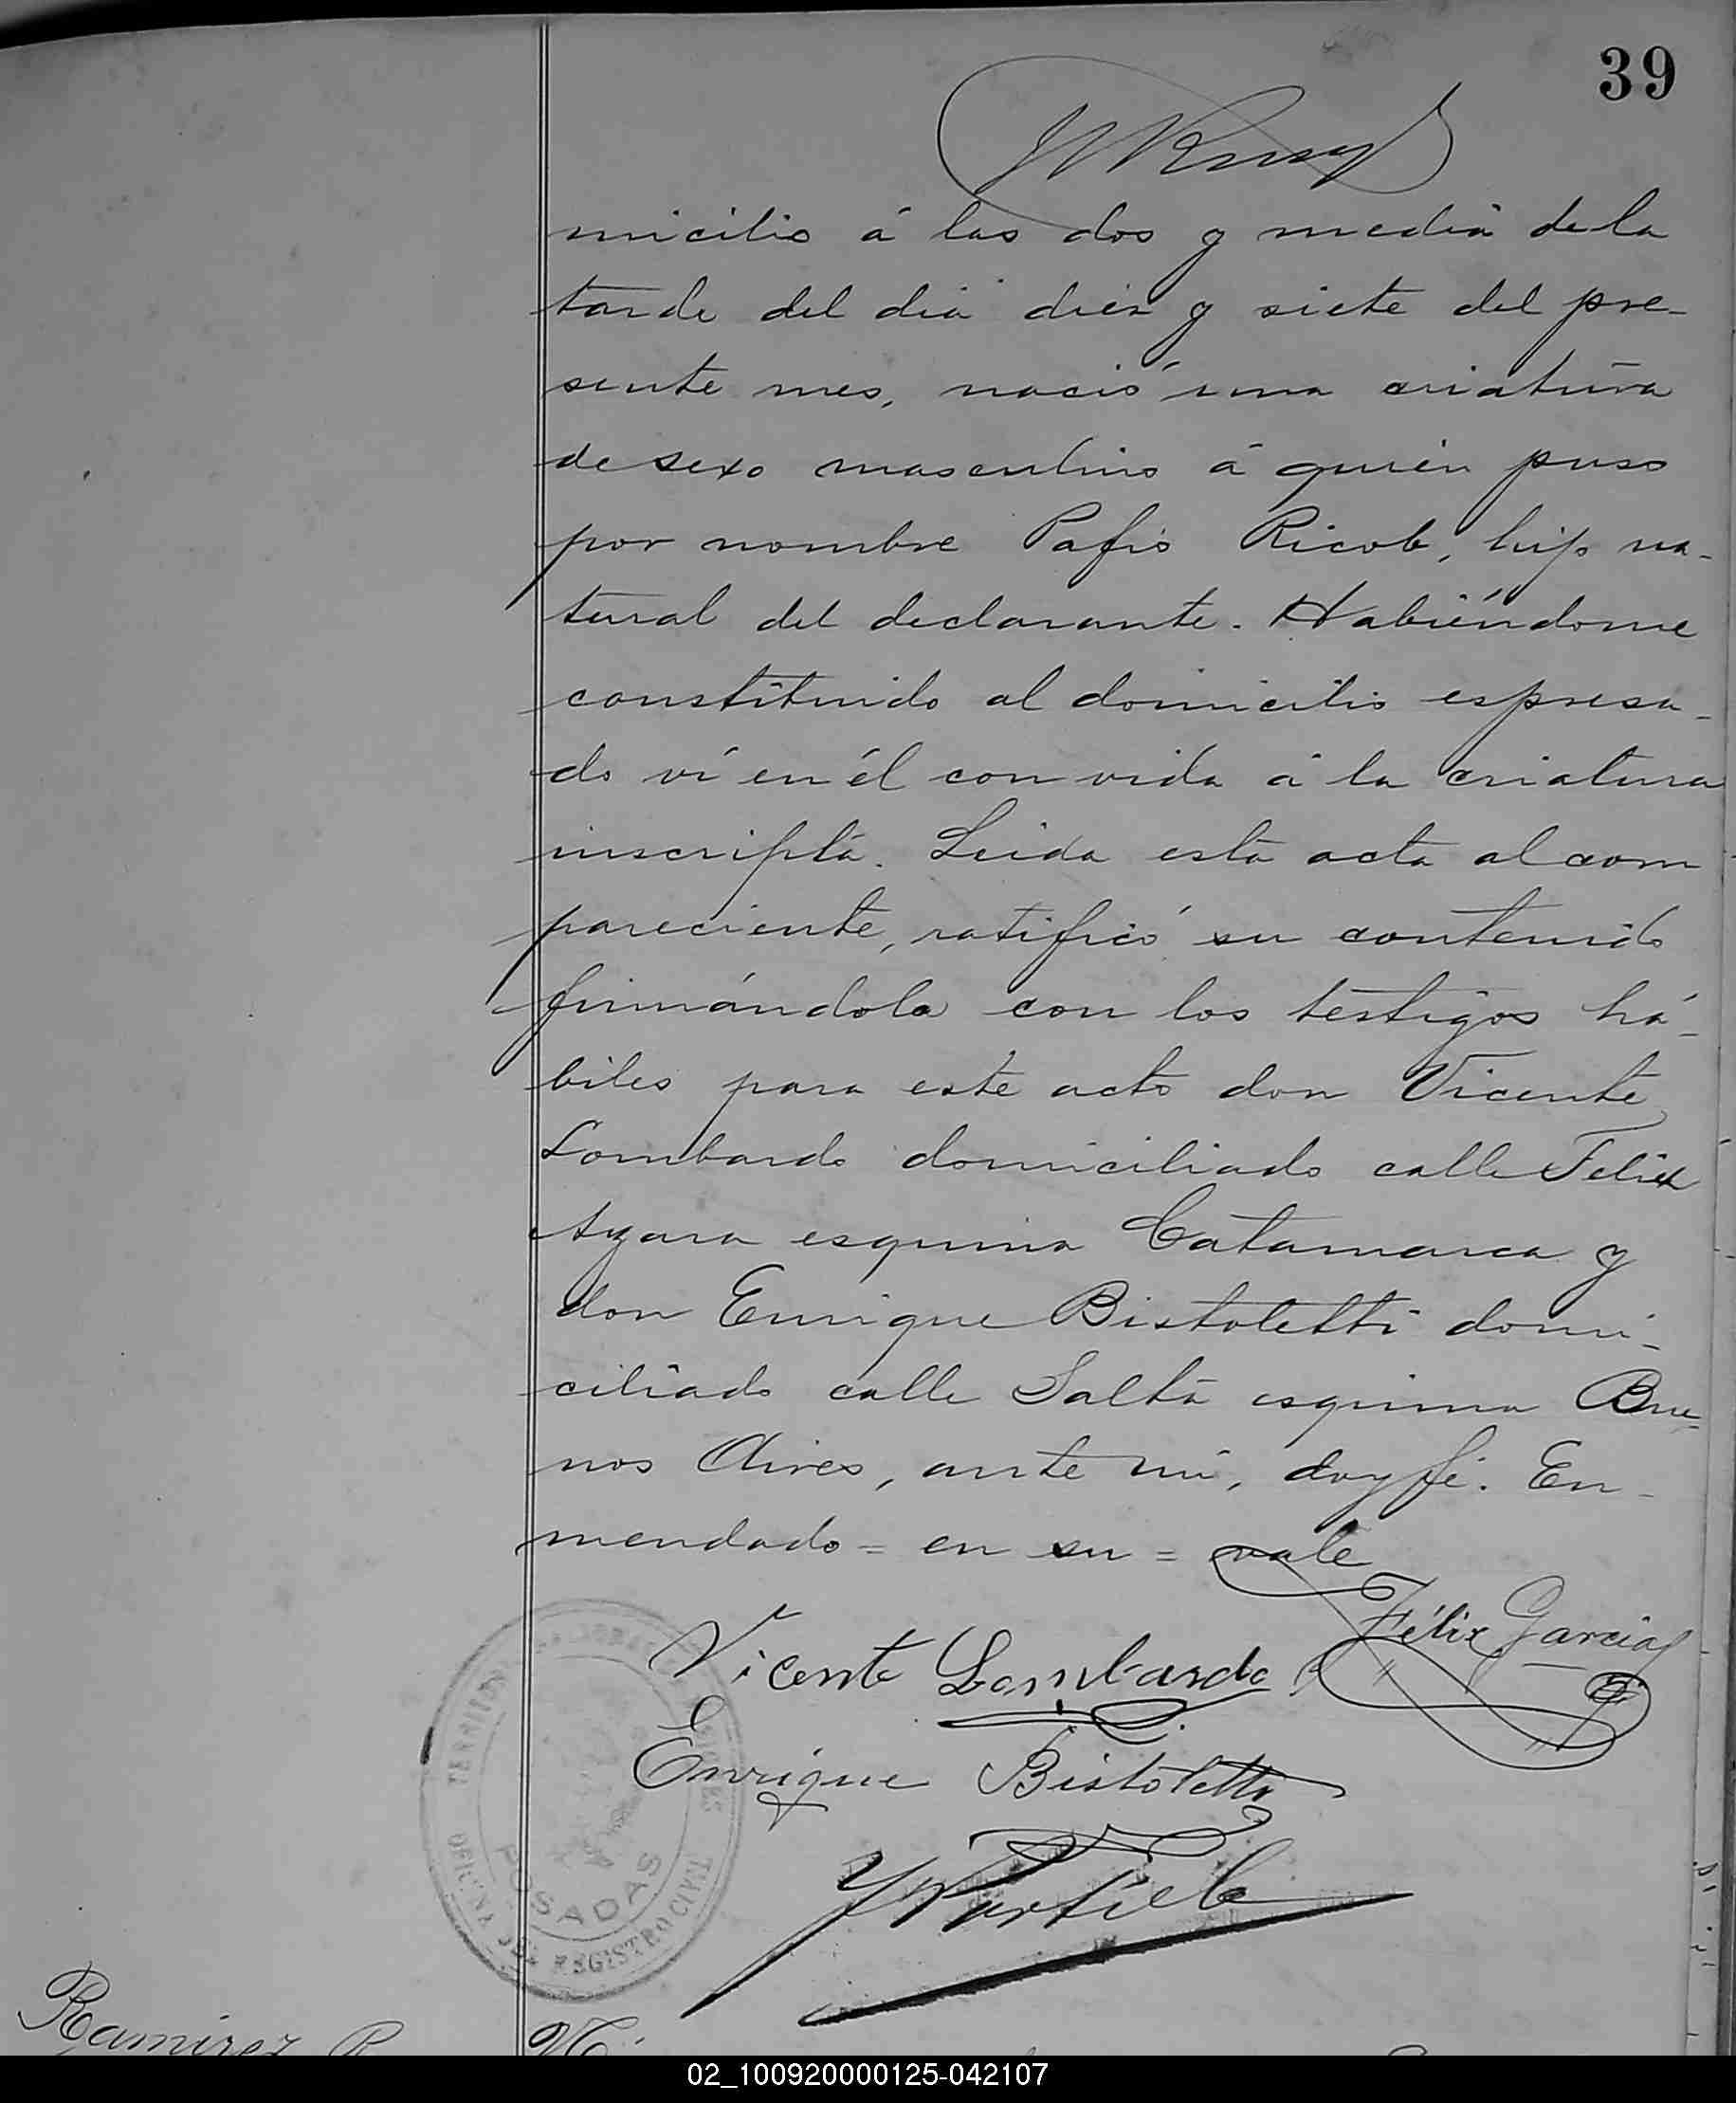 39
micilio á las dos y media de la
tarde del dia diez y siete del pre-
sente mes, nació una criatura
de sexo masculino á quién puso
por nombre Pafio Ricob, hijo na-
tural del declarante. Habiéndome
constituido al domicilio espresa-
do ví en él con vida á la criatura
inscripta. Leida esta acta al com
pareciente, ratificó su contenido
firmándola con los testigos há-
biles para este acto don Vicente
Lombardo domiciliado calle Felix
Azara esquina Catamarca y
don Enrique Bistoletti domi-
ciliado calle Salta esquina Bue-
nos Aires, ante mí, doy fé. En-
mendado = en su = vale
Félix Garcia
Vicente Lombardo
Enrique Bistoletti
POSADAS
OFICINA DEL REGISTRO CIVIL
Ramirez
02_100920000125-042107